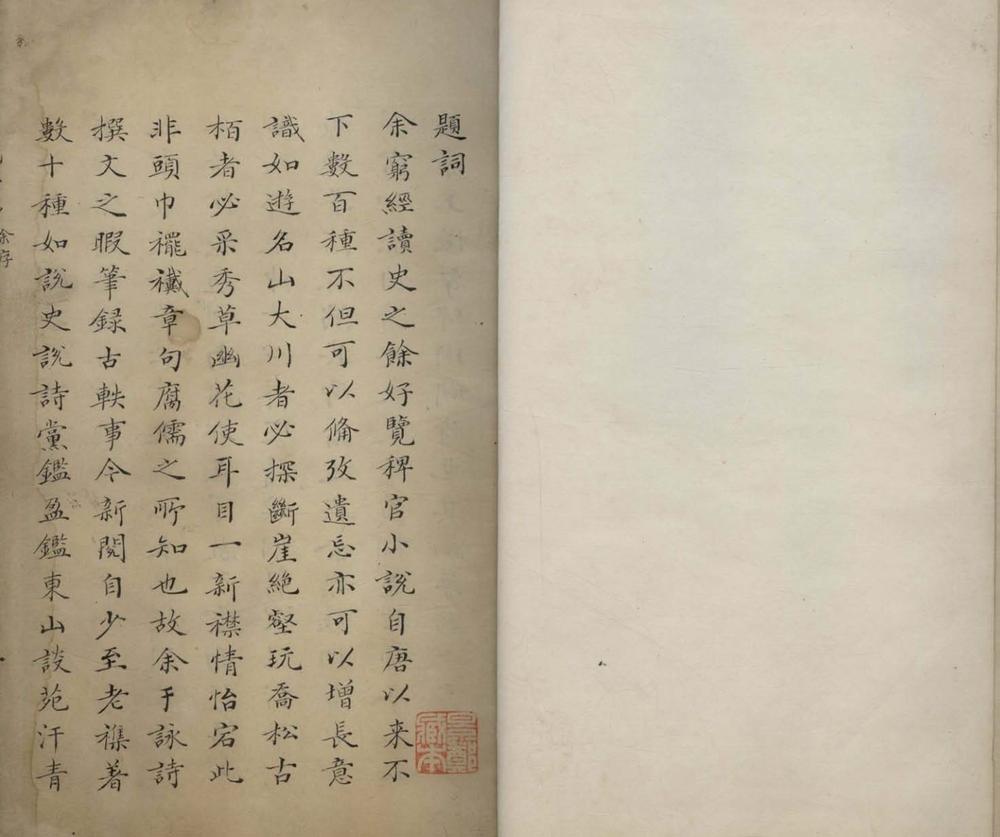 題詞
余窮經讀史之餘好覽稗官小說自唐以来不
下數百種不但可以俻攷遺忘亦可以增長意
識如遊名山大川者必探斷崖絕壑玩喬松古
栢者必采秀草幽花使耳目一新襟情怡宕此
非頭巾䙰襶章句腐儒之所知也故余于詠詩
撰文之暇筆録古軼事今新聞自少至老襍著
數十種如說史說詩黨鑑盈鑑東山談苑汗青
余序
景鄭
藏本